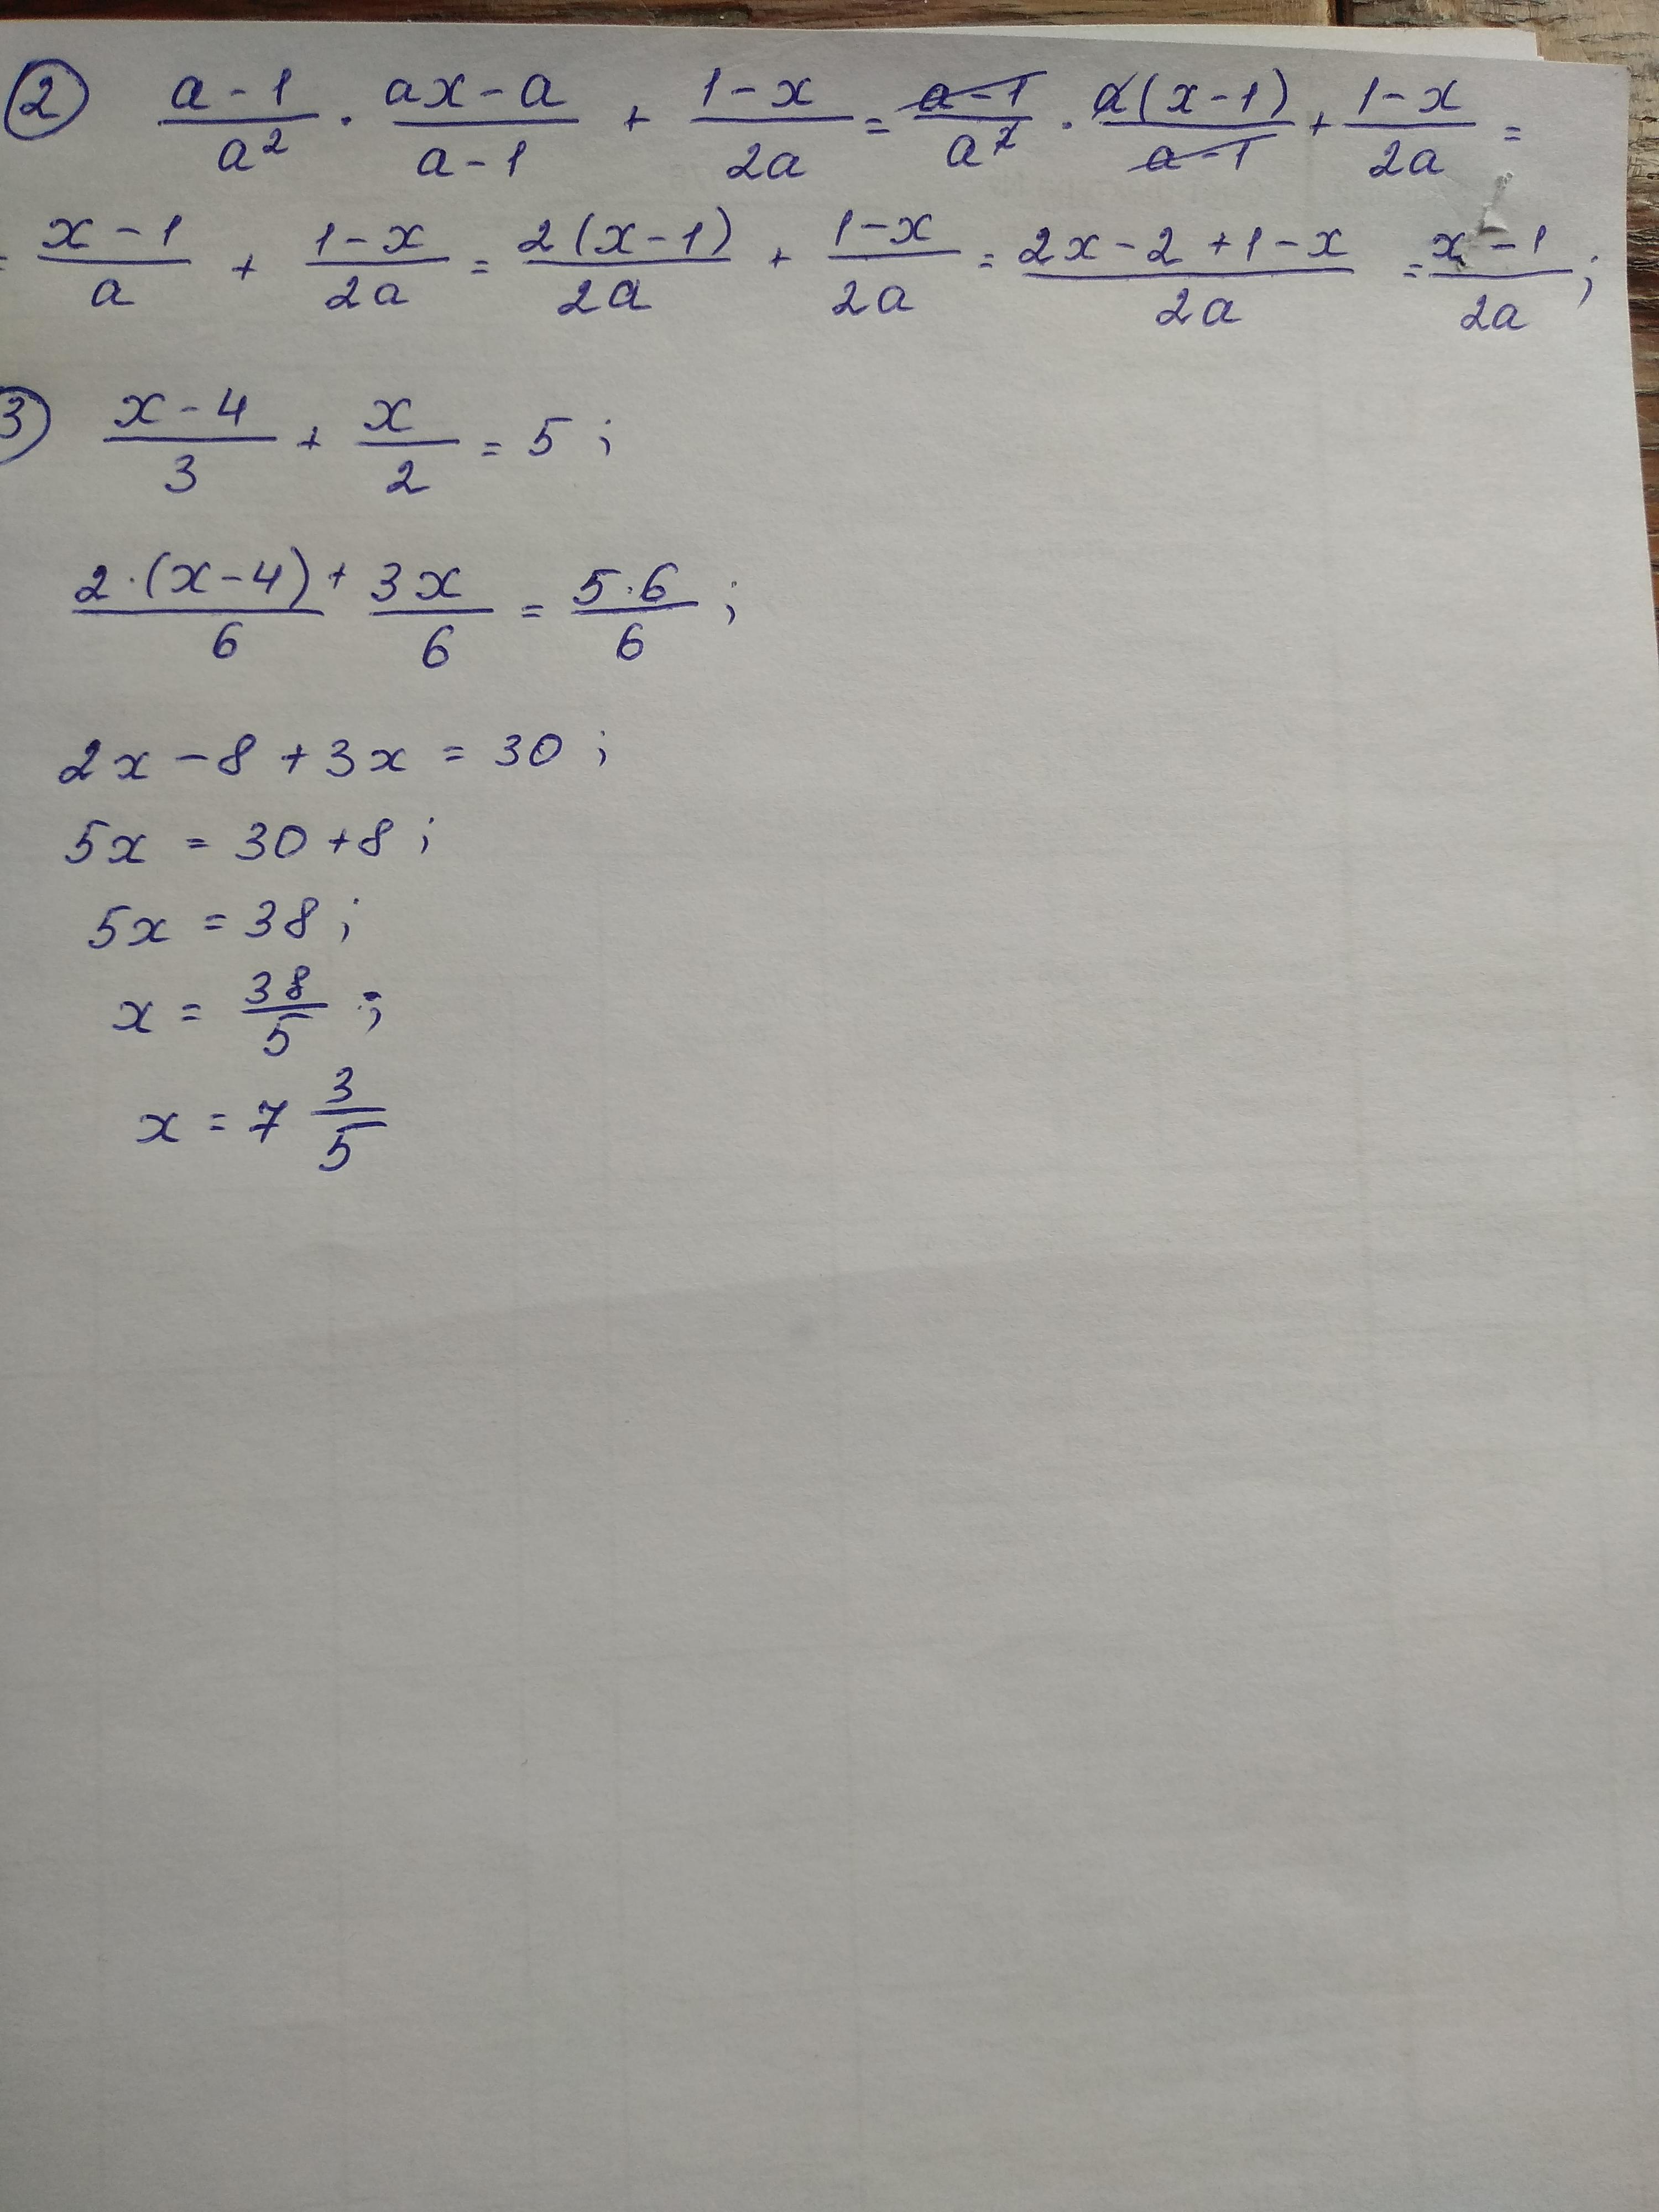 ② (a-1)/a² · (ax-a)/(a-1) + (1-x)/2a = (a-1)/a² · a(x-1)/(a-1) + (1-x)/2a =
= (x-1)/a + (1-x)/2a = 2(x-1)/2a + (1-x)/2a = (2x-2+1-x)/2a = (x-1)/2a ;
③ (x-4)/3 + x/2 = 5 ;
2·(x-4)/6 + 3x/6 = 5·6/6 ;
2x - 8 + 3x = 30 ;
5x = 30 + 8 ;
5x = 38 ;
x = 38/5 ;
x = 7 3/5